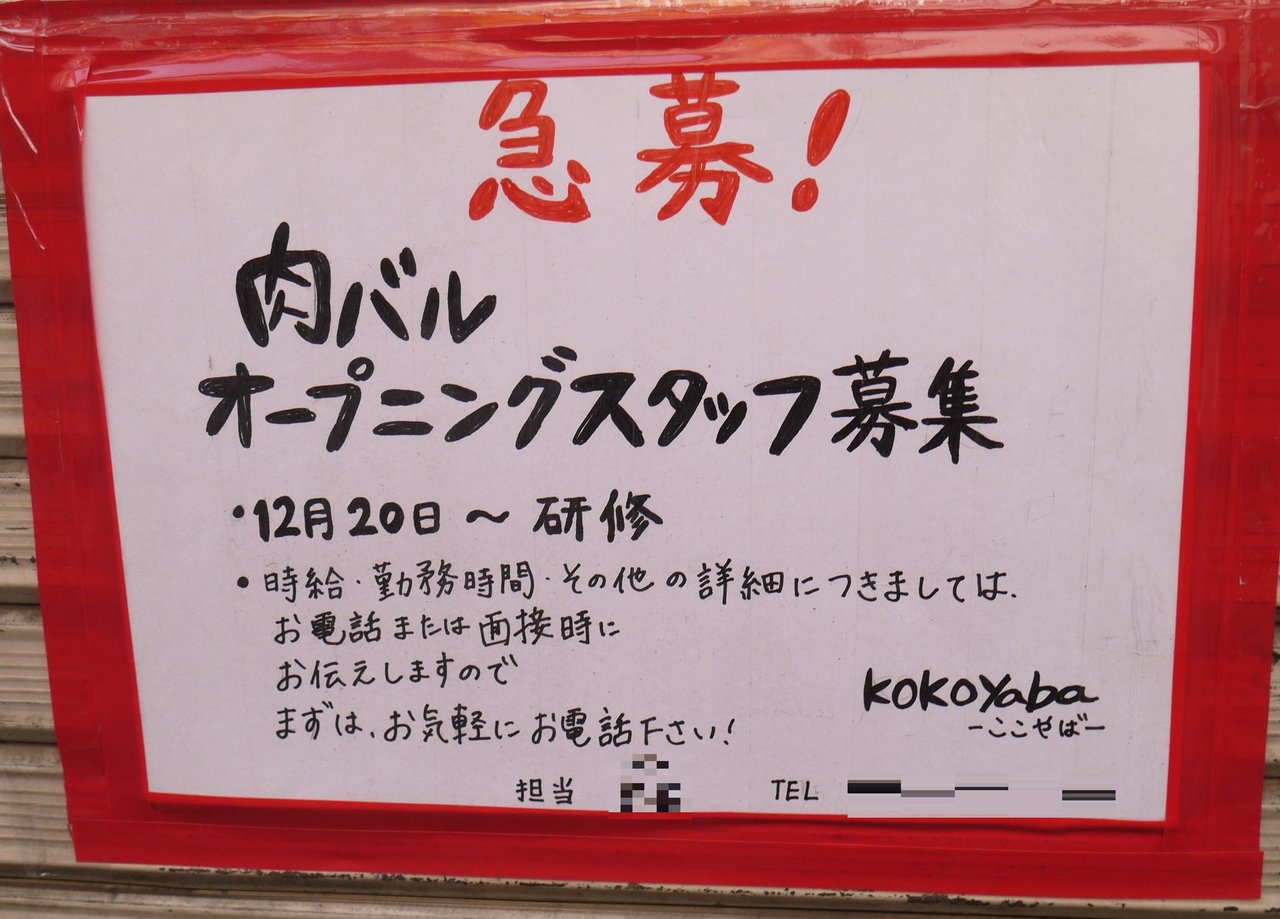 急募!
肉バル
オープニングスタッフ募集
・12月20日〜研修
・時給・勤務時間・その他の詳細につきましては、
お電話または面接時に
お伝えしますので
まずは、お気軽にお電話下さい!
KOKOYaba
-ここやば-
担当 TEL